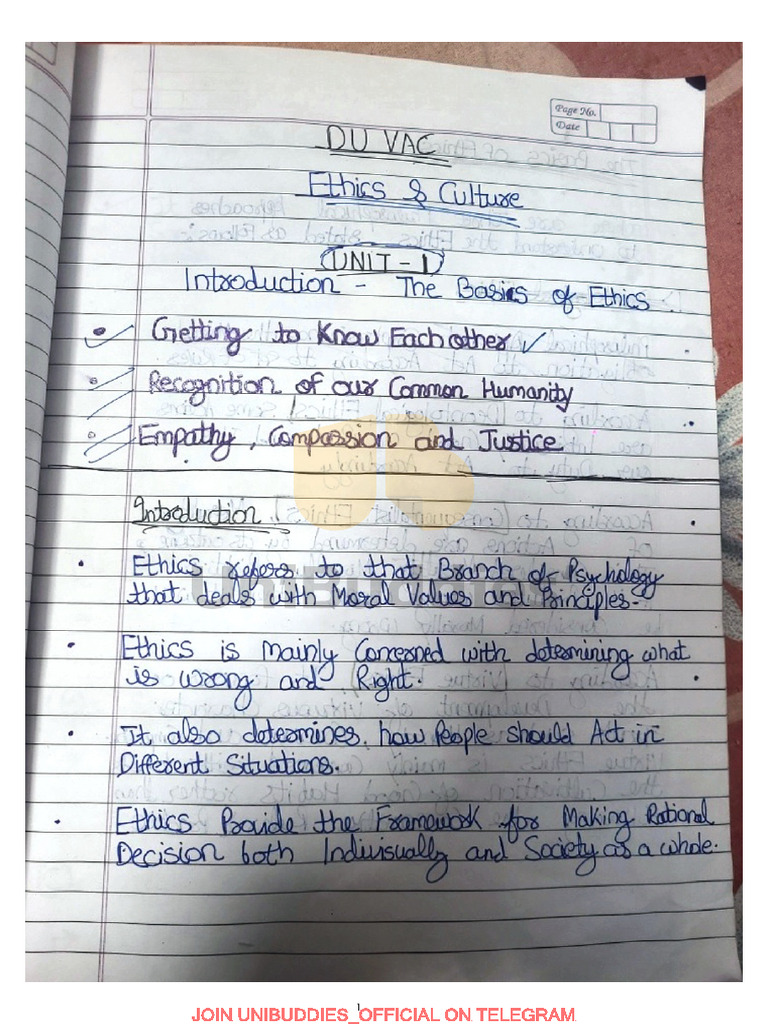 Page No.
Date
DU VAC
Ethics & Culture
UNIT - 1
Introduction - The Basics of Ethics.
Getting to Know Each other
Recognition of our Common Humanity
Empathy, Compassion and Justice
Introduction.
Ethics refers to that Branch of Psychology
that deals with Moral Values and Principles.
Ethics is Mainly Concerned with determining what
is wrong and Right.
It also determines how People should Act in
Different Situations.
Ethics Provide the Framework for Making Rational
Decision both Indivisually and Society as a whole.
1
JOIN UNIBUDDIES_OFFICIAL ON TELEGRAM